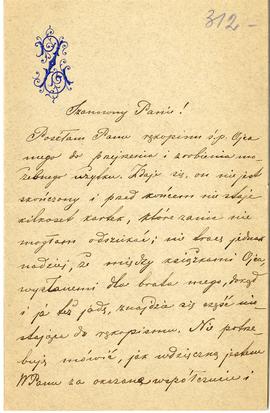 312-
Szanowny Panie!
Posełam Panu rękopism ś.p. Ojca
mego do przejrzenia i zrobienia mo-
żebnego użytku. Zdaje się, on nie jest
skończony i przed końcem nie staje
kilkoset kartek, które zanie nie
mogłam odszukać, nie tracę jednak
nadziei, że między książkami Ojca
wysłanemi dla brata mego, dokąd
i ja też jadę, znajdzie się część nie-
stająca do rękopismu. Nie potrze-
buję mówić, jak wdzięczną jestem
WPanu za okazane współczucie i